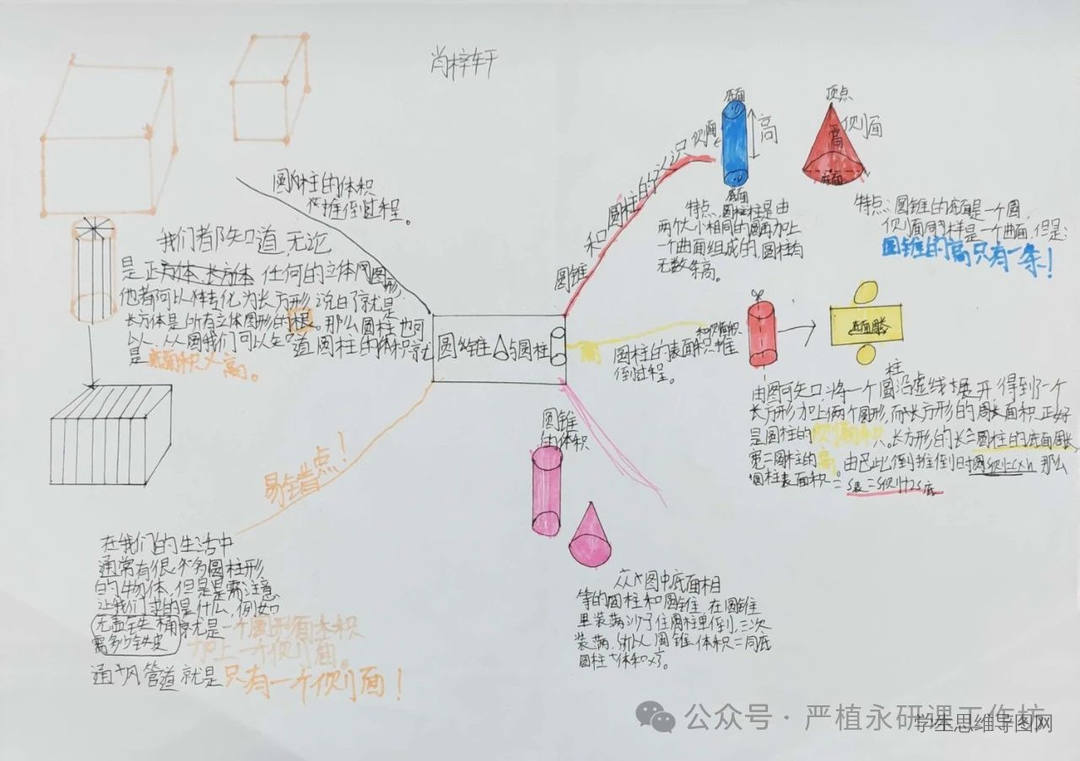 肖梓轩
圆柱的体积
推倒过程。
我们都知道,无论
是正方体、长方体 任何的立体图形
他都可以转化为长方形,说白了就是
长方体是所有立体图形的根。那么圆柱也可
以,从图我们可以知道圆柱的体积就
是底面积×高。
圆锥与圆柱
圆锥和圆柱的认识
底面
侧面
高
底面
特点:圆柱是由
两个大小相同的圆面加上
一个曲面组成的,圆柱有
无数条高。
顶点
侧面
高
底面
特点:圆锥的底面是一个圆,
侧面同样是一个曲面,但是:
圆锥的高只有一条!
圆柱的表面积推
倒过程。
柱
由图可知:将一个圆沿虚线展开,得到了一个
长方形,加上两个圆形,而长方形的面积,正好
是圆柱的
长方形的长=圆柱的底面周长
宽=圆柱的高。由此
那么
圆柱表面积=S表=S侧+2S底
圆锥
的体积
从图中底面相
等的圆柱和圆锥,在圆锥
里装满沙子往圆柱里倒,三次
装满,所以圆锥体积=同底
圆柱体积×⅓。
易错点!
在我们的生活中
通常有很多圆柱形
的物体,但是需注意
让我们求的是什么,例如
无盖铁桶
需多少铁皮
就是一个圆形面积
加上一个侧面。
通风管道就是只有一个侧面!
公众号·严植永研课工作坊
学生思维导图网